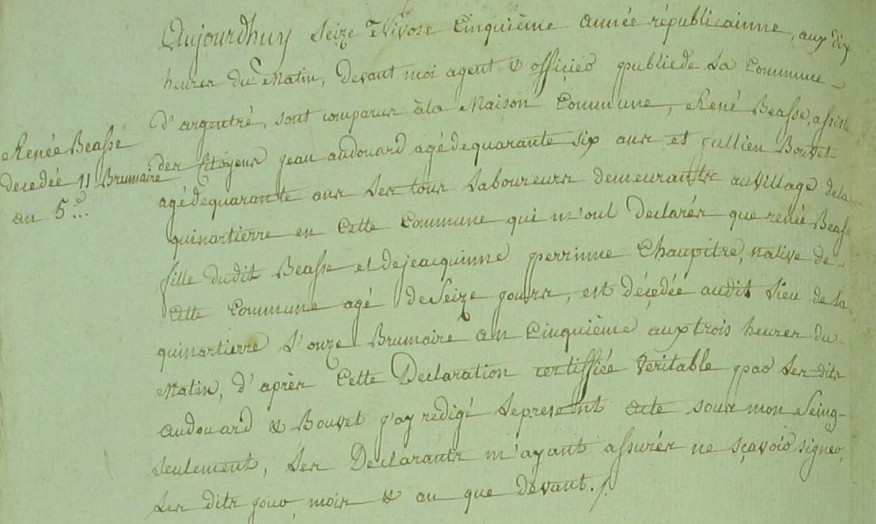 Aujourdhuy Seize Nivose Cinquième année républicainne, aux dix
heures du Matin, devant moi agent & officier public de la Commune
d'argentré, sont comparus à la Maison Commune, René Beasse, assisté
Renée Beassé
decedée 11 Brumaire
an 5e...
des Citoyens jean audouard agé de quarante six ans et jullien Bouvet
agé de quarante ans les tous laboureurs demeurants au village de la
quinartierre en Cette Commune qui m'ont Declarés que renée Beasse
fille dudit Beasse et de jeacquinne perrinne Chaupitre, native de
Cette Commune agé de Seize jours, est décédée audit lieu de la
quinartierre l'onze Brumaire an Cinquième aux trois heures du
Matin, d'après Cette Declaration certiffiée Veritable par les dits
audouard & Bouvet j'ay redigé le present acte sous mon Seing
seulement, les Declarants m'ayant assurés ne sçavoir signer,
les dits jour, mois & an que devant./.